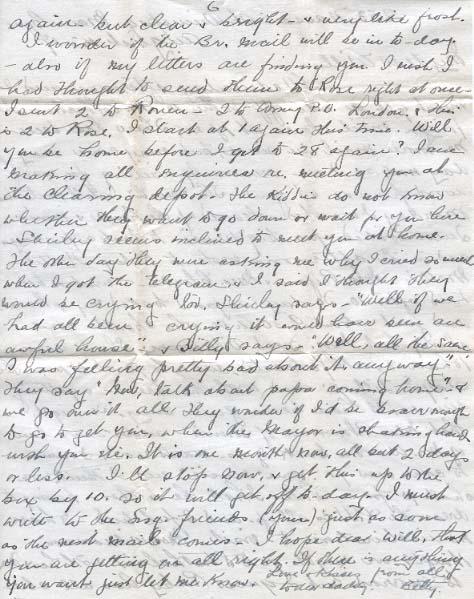 6
again - but clear & bright - & very like frost.
I wonder if the Br. mail will be in to-day
- also if my letters are finding you. I wish I
had thought to send them to Rose right at once.
I sent 2 to Rouen - 2 to Army P.O. London, & this
is 2 to Rose. I start at 1 again this time. Will
you be home before I get to 28 again? I am
making all enquiries re. meeting you at
the clearing depot. The kiddies do not know
whether they want to go down or wait for you here
- Shirley seems inclined to meet you at home.
The other day they were asking me why I cried so much
when I got the telegram, & I said I thought they
would be crying too. Shirley says - "Well if we
had all been crying it would have been an
awful house" - & Billy says - "Well, all the same
I was feeling pretty bad about it, anyway".
They say "Now, talk about papa coming home" - &
we go over it all. They wonder if I'd be brave enough
to go to get you, when the Mayor is shaking hands
with you etc. It is one month now, all but 2 days
or less. I'll stop now, & get this up to the
box by 10. so it will get off to-day. I must
write to the Eng. friends (your) just as soon
as the next mail comes. I hope dear Will, that
you are getting on all right. If there is anything
you want just let me know. Love & kisses from all
to dear daddy. Betty.